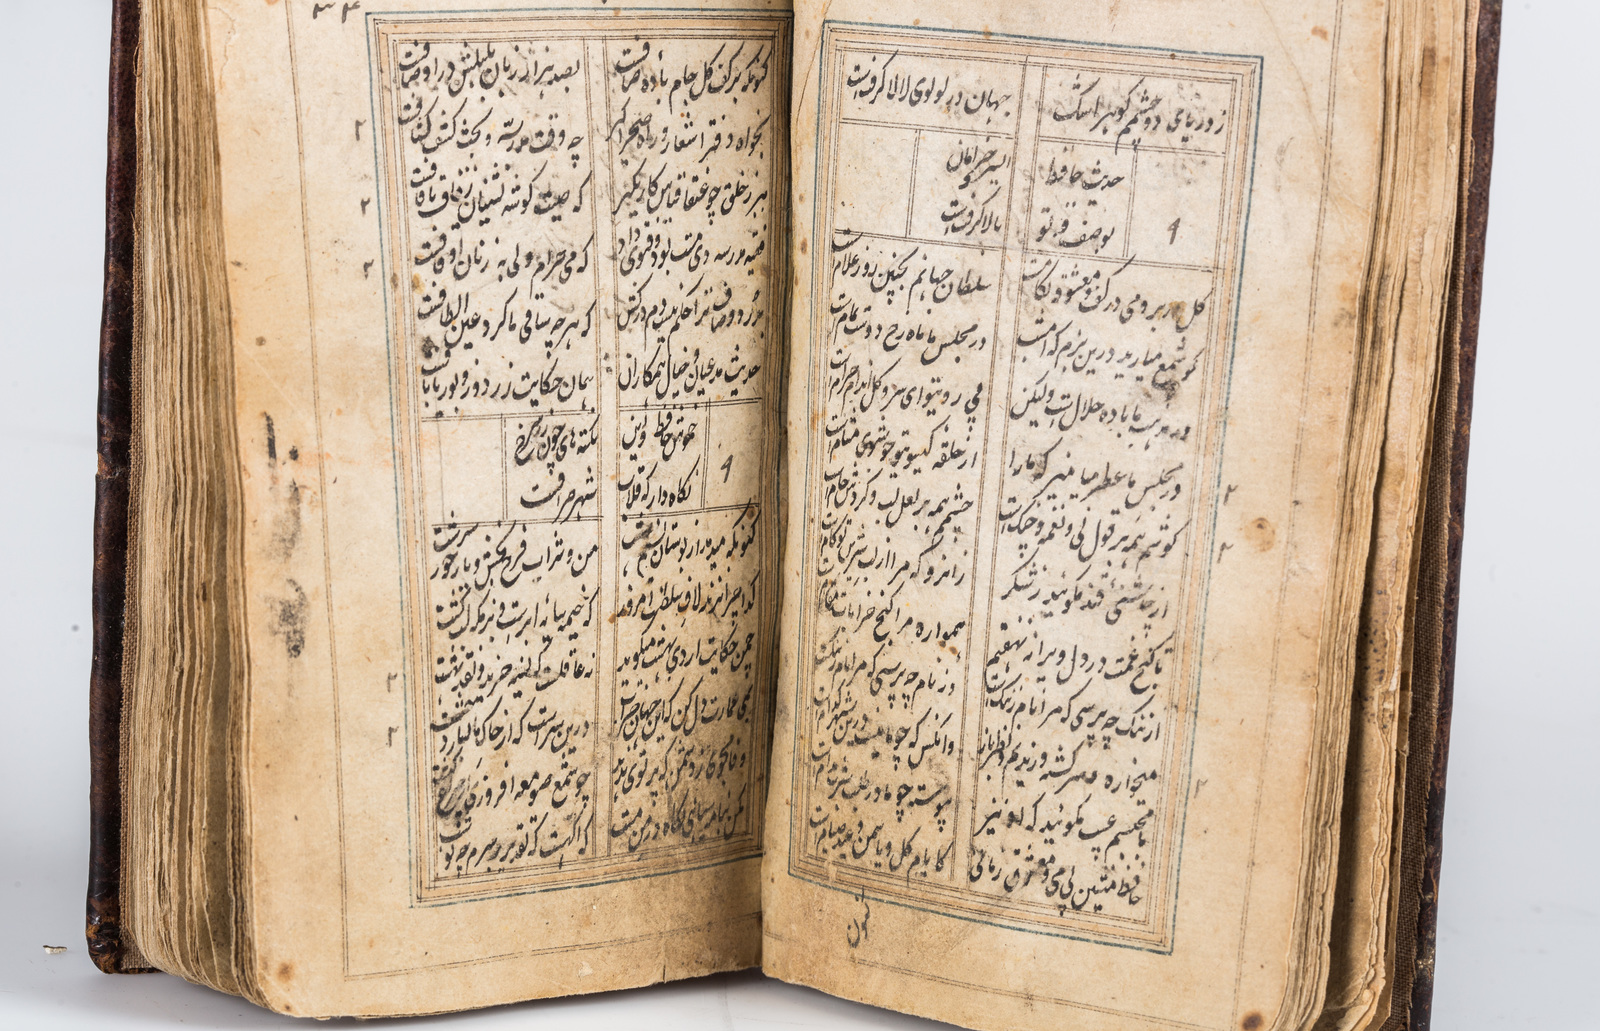 ز دریای دو چشمم گوهر اشک جهان در لولوی لالا گرفتست
حدیث حافظ ای سرو خرامان
بوصف قد تو بالا گرفتست
گل در بر و می در کف و معشوقه بکامست سلطان جهانم بچنین روز غلامست
گو شمع میارید درین بزم که امشب در مجلس ما ماه رخ دوست تمامست
در مذهب ما باده حلالست ولیکن بی روی تو ای سرو گل اندام حرامست
در مجلس ما عطر میامیز که ما را از حلقه گیسوی تو خوشبوی مشامست
گوشم همه بر قول نی و نغمه چنگست چشمم همه بر لعل لب و گردش جامست
از چاشنی قند مگوئید ز شکر زانرو که مرا از لب شیرین تو کامست
تا گنج غمت در دل ویرانه مقیمست همواره مرا کنج خرابات مقامست
از ننگ چه پرسی که مرا نام ز ننگست وز نام چه پرسی که مرا ننگ ز نامست
میخواره و سرگشته و رندیم و نظرباز وانکس که چو ما نیست درین شهر کدامست
با محتسبم عیب مگوئید که او نیز پیوسته چو ما در طلب شرب مدامست
حافظ منشین بی می و معشوق زمانی کایام گل و یاسمن و عید صیامست
کنون
کنونکه بر کف گل جام باده صافست بصد هزار زبان بلبلش در اوصافست
بخواه دفتر اشعار و راه صحرا گیر چه وقت مدرسه و بحث کشف کشافست
ببر ز خلق چو عنقا قیاس کار بگیر که صیت گوشه نشینان ز قاف تا قافست
فقیه مدرسه دی مست بود و فتوی داد که می حرام ولی به ز نان اوقافست
بدرد و صاف ترا حکم نیست دم درکش که هر چه ساقی ما کرد عین الطافست
حدیث مدعیان و خیال همکاران همان حکایت زردوز و بوریابافست
خموش حافظ و این نکته های چون زر سرخ
نگاه دار که قلاب شهر صرافست
کنونکه میدمد از بوستان نسیم بهشت من و شراب فرح بخش و یار حور سرشت
گدا چرا نزند لاف سلطنت امروز که خیمه سایه ابرست و بزمگه لب کشت
چمن حکایت اردی بهشت میگوید نه عاقلست که نسیه خرید و نقد بهشت
بمی عمارت دل کن که این جهان خراب درین سرست که از خاک ما بسازد خشت
وفا مجوی ز دشمن که پرتوی ندهد چو شمع صومعه افروزی از چراغ کنشت
مکن بنامه سیاهی نگاه در من مست که آگهست که تقدیر بر سرم چه نوشت